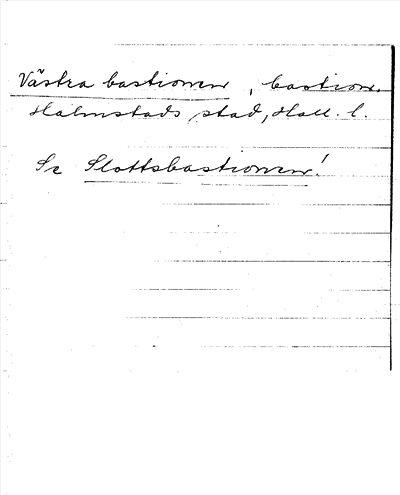 Västra bastionen, bastion.
Halmstads stad, Hall. l.
Se Slottsbastionen!